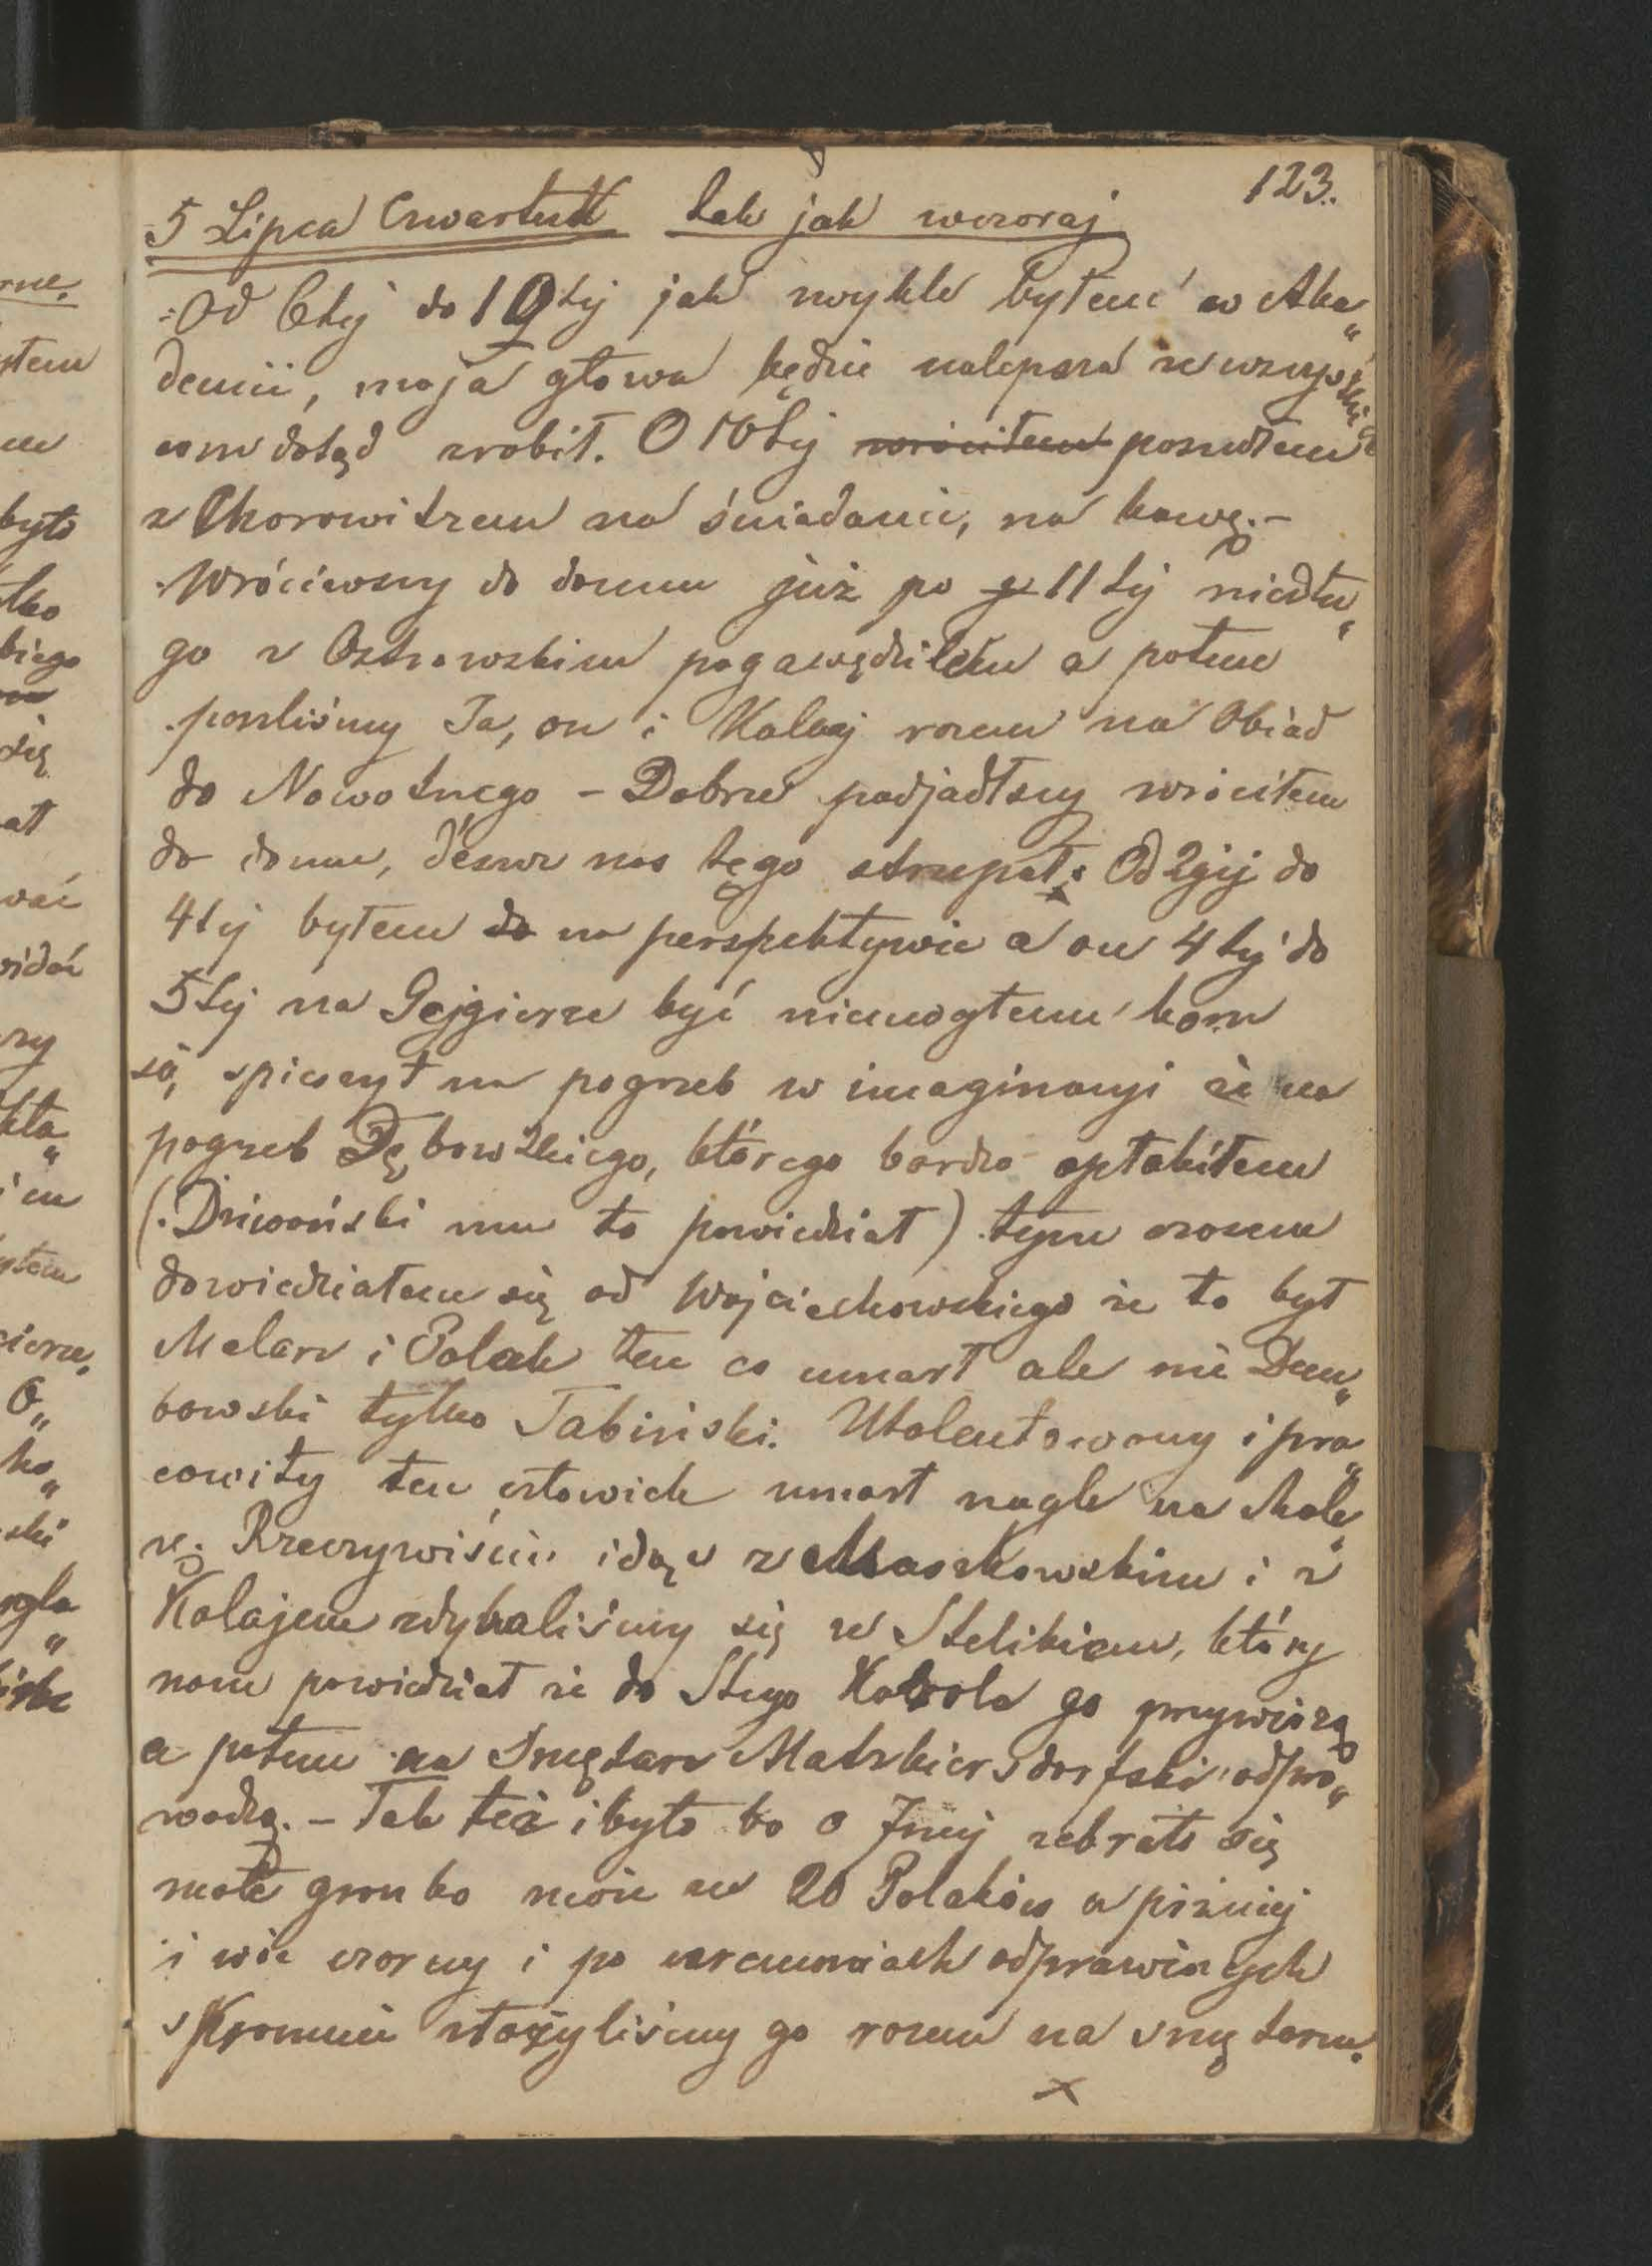 123.
5 Lipca Czwartek tak jak wczoraj
Od 6tej do 10tej jak zwykle byłem w Aka„
demii, moja głowa będzie nalepsza ze wszystkich
com dotąd zrobił. O 10tej wróciłem poszedłem
z Chorowitzem na śniadanie, na kawę.–
Wróciwszy do domu już po 11tej niedłu„
go z Ostrowskim pogawędziłem a potem
poszliśmy Ja, on i Kolaj razem na Obiad
do Nowotnego – Dobrze podjadłszy wróciłem
do domu, deszcz nas tęgo strzepał. Od 2giej do
4tej byłem do na perspektywie a on 4tej do
5tej na Gejgierze być niemogłem bom
się spieszył na pogrzeb w imaginacyi że na
pogrzeb Dębowskiego, którego bardzo opłakiłem
(Dziwoński mu to powiedział) tymczasem
dowiedziałem się od Wojciechowskiego że to był
Malarz i Polak ten co umarł ale nie Dem„
bowski tylko Tabiński. Utalentowany i pra„
cowity ten człowiek umarł nagle na Skole„
rę. Rzeczywiście idąc z Maszkowskim i z
Kolajem zdybaliśmy się ze Stelikiem, który
nam powiedział że do Stego Karola go przywiozą
a potem na Smętarz Matzleinsdorfski odpro„
wadzą. – Tak też i było bo o 7mej zebrało się
małe gronko może ze 20 Polaków a pieżniej
i wie czorny i po ceremoniach odprawionych
skromnie złożyliśmy go razem na smętarzu.
x